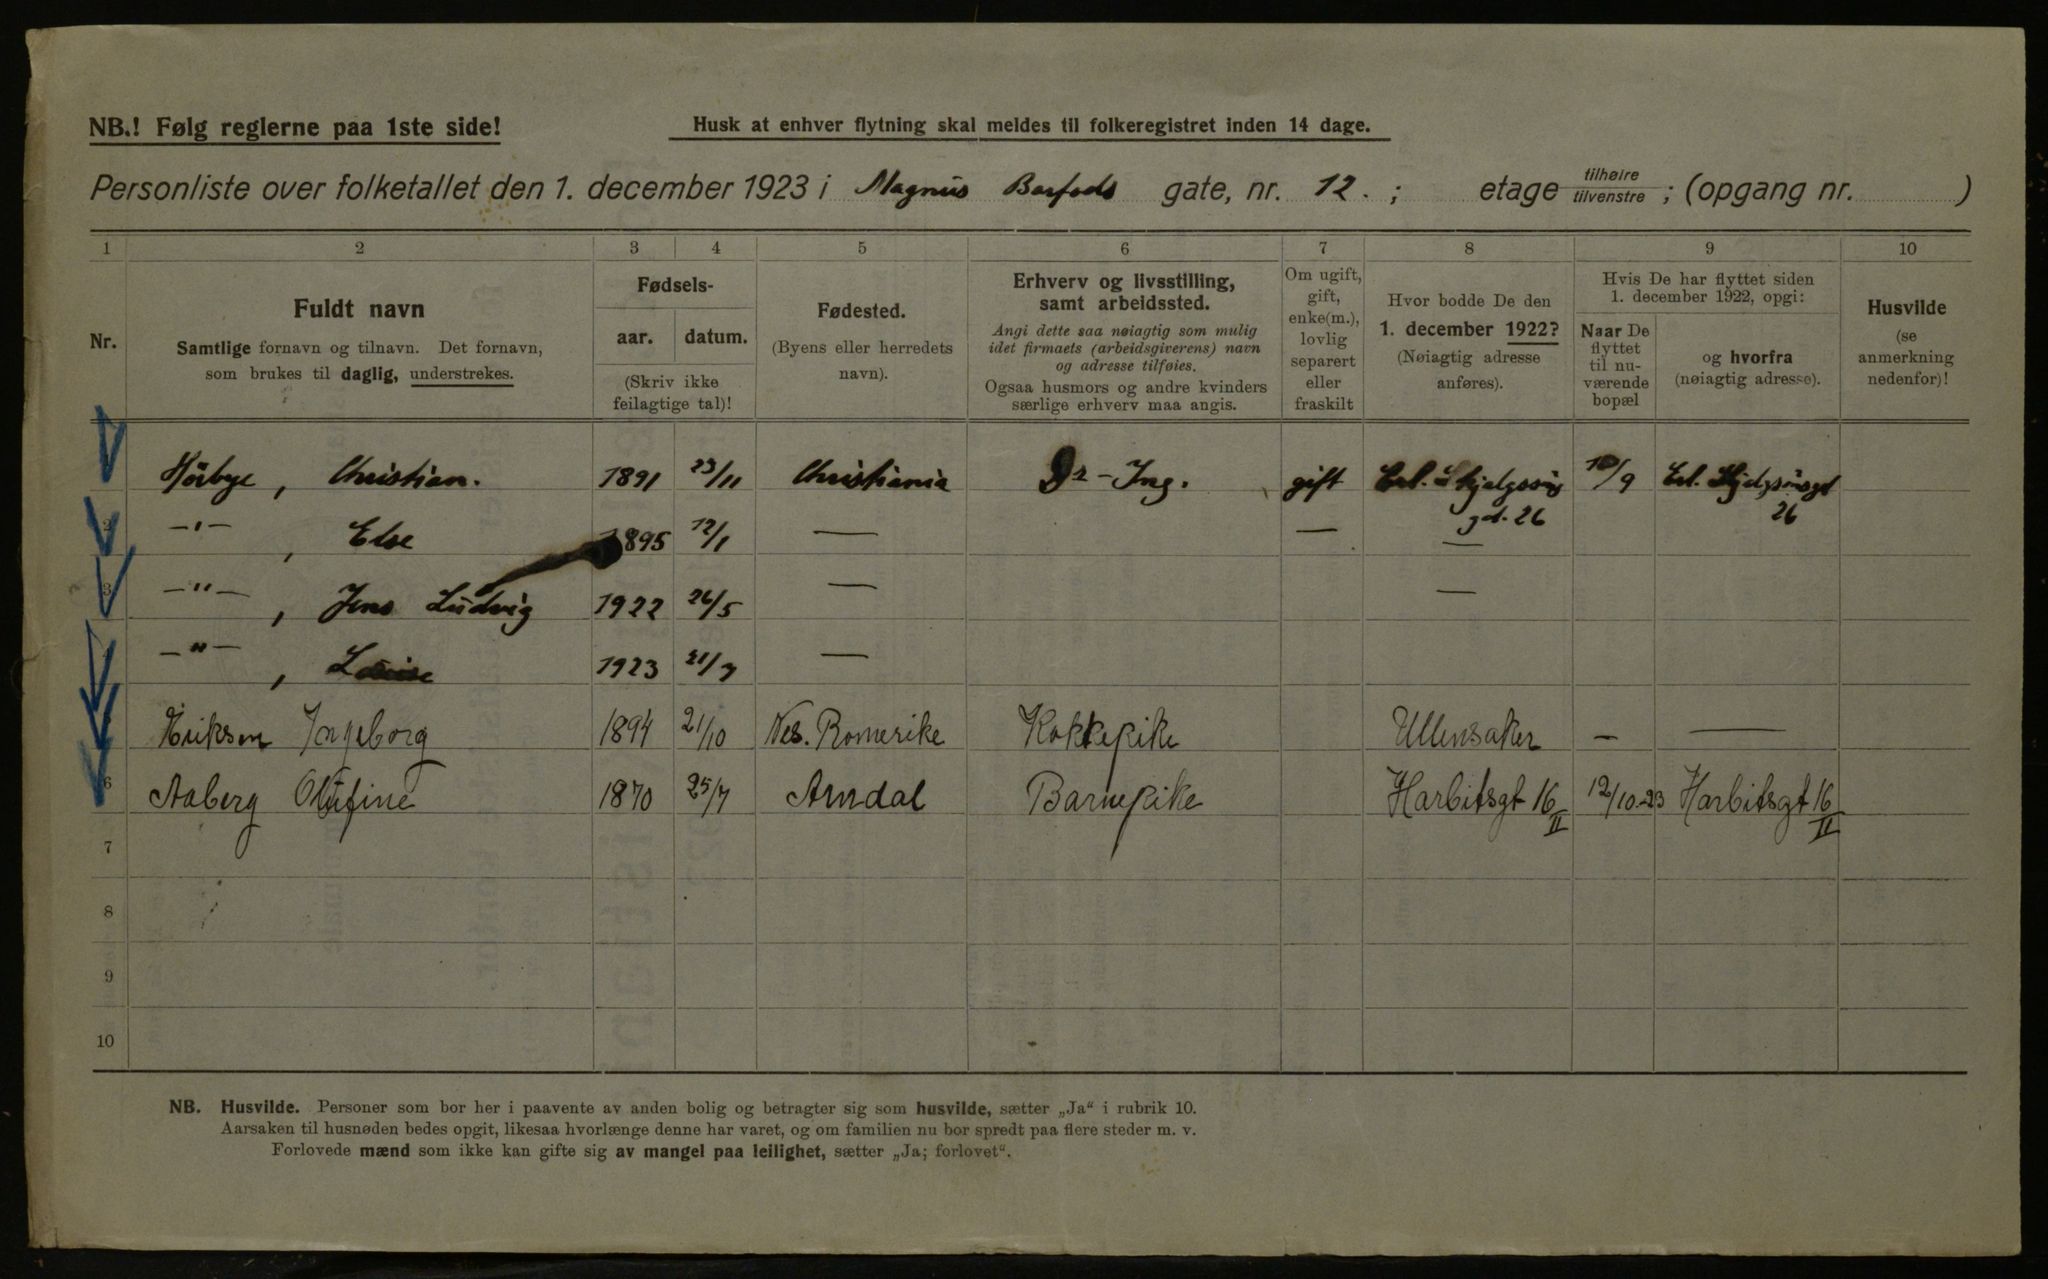 NB.! Følg reglerne paa 1ste side!
Husk at enhver flytning skal meldes til folkeregistret inden 14 dage.
Personliste over folketallet den 1. december 1923 i Magnus Barfods gate, nr. 12. ; etage tilhøire tilvenstre ; (opgang nr. )
1 2 3 4 5 6 7 8 9 10
Nr.
Fuldt navn
Samtlige fornavn og tilnavn. Det fornavn,
som brukes til daglig, understrekes.
Fødsels-
aar. datum.
(Skriv ikke
feilagtige tal)!
Fødested.
(Byens eller herredets
navn).
Erhverv og livsstilling,
samt arbeidssted.
Angi dette saa nøiagtig som mulig
idet firmaets (arbeidsgiverens) navn
og adresse tilføies.
Ogsaa husmors og andre kvinders
særlige erhverv maa angis.
Om ugift,
gift,
enke(m.),
lovlig
separert
eller
fraskilt
Hvor bodde De den
1. december 1922?
(Nøiagtig adresse
anføres).
Hvis De har flyttet siden
1. december 1922, opgi:
Naar De
flyttet
til nu-
værende
bopæl
og hvorfra
(nøiagtig adresse).
Husvilde
(se
anmerkning
nedenfor)!
Hörbye, Christian. 1891 23/11 Christiania Dr-Ing. gift Erl. Skjalgssøns 10/9 Erl. Skjalgssønsgt
gt. 26 26
2 —"— , Else 1895 12/1 — — —
3 —"— , Jens Ludvig 1922 26/5 — —
4 —"— , Louise 1923 21/7 —
5 Eriksen Ingeborg 1894 21/10 Nes. Romerike Kokkepike Ullensaker — —
6 Aaberg Olufine 1870 25/7 Arndal Barnepike Harbitsgt 16 II 12/10-23 Harbitsgt 16 II
7
8
9
10
NB. Husvilde. Personer som bor her i paavente av anden bolig og betragter sig som husvilde, sætter „Ja“ i rubrik 10.
Aarsaken til husnøden bedes opgit, likesaa hvorlænge denne har varet, og om familien nu bor spredt paa flere steder m. v.
Forlovede mænd som ikke kan gifte sig av mangel paa leilighet, sætter „Ja; forlovet“.